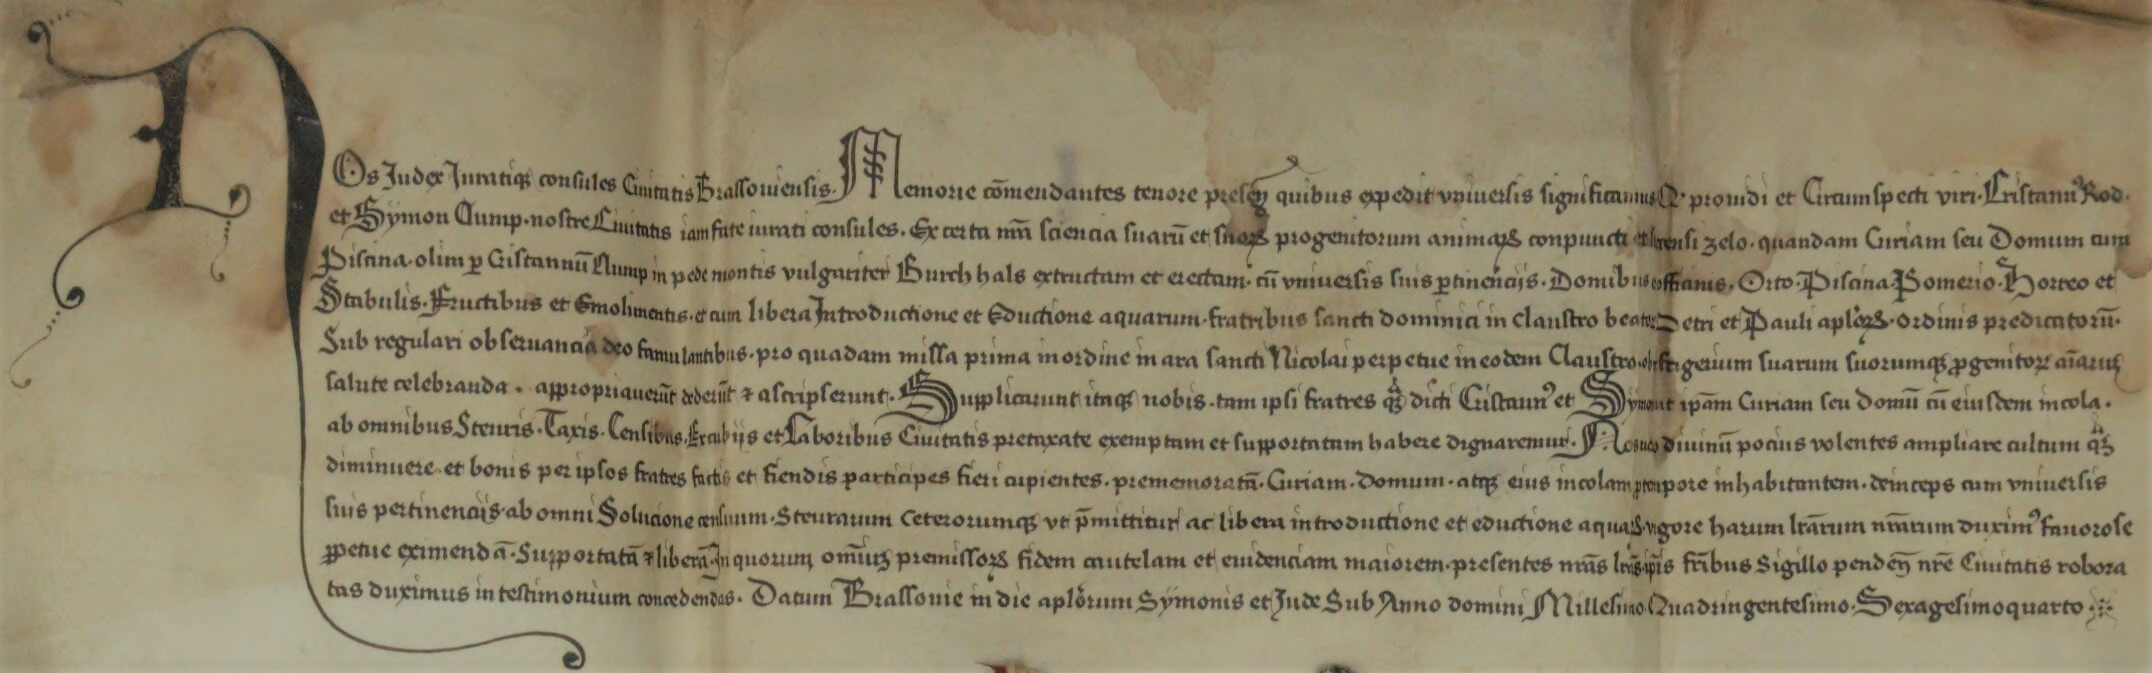 NOs Judex Juratiqȝ consules Ciuitatis Brassouiensis. Memorie cōmendantes tenore presenꝭ quibus expedit vniuersis significamus Qꝫ prouidi et Circumspecti viri. Cristannꝰ Rod.
et Symon Cump. nostre Ciuitatis iamfate iurati consules. Ex certa nr̄a sciencia suarū et suoꝝ progenitorum animaꝝ conpuncti zelo. quandam Curiam seu Domum cum
Piscina. olim ꝑ Cristannū Clump in pede montis vulgariter Burchhals extructam et erectam. cū vniuersis suis ꝑtinencijs. Domibus Orto. Piscina. Pomerio. Horreo et
Stabulis. Fructibus et Emolimentis. et cum libera Introductione et Eductione aquarum. fratribus sancti dominici in claustro beatoꝝ Petri et Pauli apl̄oꝝ. ordinis predicatorū.
Sub regulari obseruancia deo famulantibus. pro quadam missa prima in ordine in ara sancti Nicolai perpetue in eodem Claustro. refrigerium suarum suorumqȝ ꝓgenitoꝝ aīarum
salute celebranda. appropriauerūt dederūt ⁊ ascripserunt. Supplicarunt itaqȝ nobis. tam ipsi fratres qȝ dicti Cristannꝰ et Symon ut ipsam Curiam seu domū cū eiusdem incola.
ab omnibus Steuris. Taxis. Censibus. Excubijs et Laboribus Ciuitatis pretaxate exemptam et supportatam habere dignaremur. Nos diuinū pocius volentes ampliare cultum qȝ
diminuere. et bonis per ipsos fratres factis et fiendis participes fieri cupientes. prememoratā. Curiam. domum. atqȝ eius incolam ꝓ tempore inhabitantem. deinceps cum vniuersis
suis pertinencijs. ab omni Solucione censuum. Steurarum Ceterorumqȝ vt p̄mittitur ac libera introductione et eductione aquaꝝ. vigore harum lr̄arum nr̄arum duximꝰ fauorose
ꝑpetue eximendā. Supportatā ⁊ liberā. In quorum om̄iuꝫ premissoꝝ fidem cautelam et euidenciam maiorem. presentes nr̄as lr̄as ip̄is fr̄ibus Sigillo pendenꝭ nr̄e Ciuitatis robora
tas duximus in testimonium concedendas. Datum Brassouie in die apl̄orum Symonis et Jude Sub Anno domini Millesimo Quadringentesimo. Sexagesimoquarto